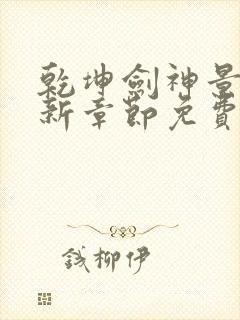 乾坤劍神景
新章節免費
錢柳伊